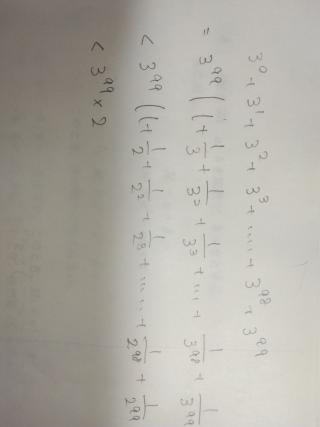 3⁰ + 3¹ + 3² + 3³ + ..... + 3⁹⁸ + 3⁹⁹
= 3⁹⁹ (1 + 1/3 + 1/3² + 1/3³ + .... + 1/3⁹⁸ + 1/3⁹⁹
< 3⁹⁹ (1 + 1/2 + 1/2² + 1/2³ + ..... + 1/2⁹⁸ + 1/2⁹⁹
< 3⁹⁹ × 2